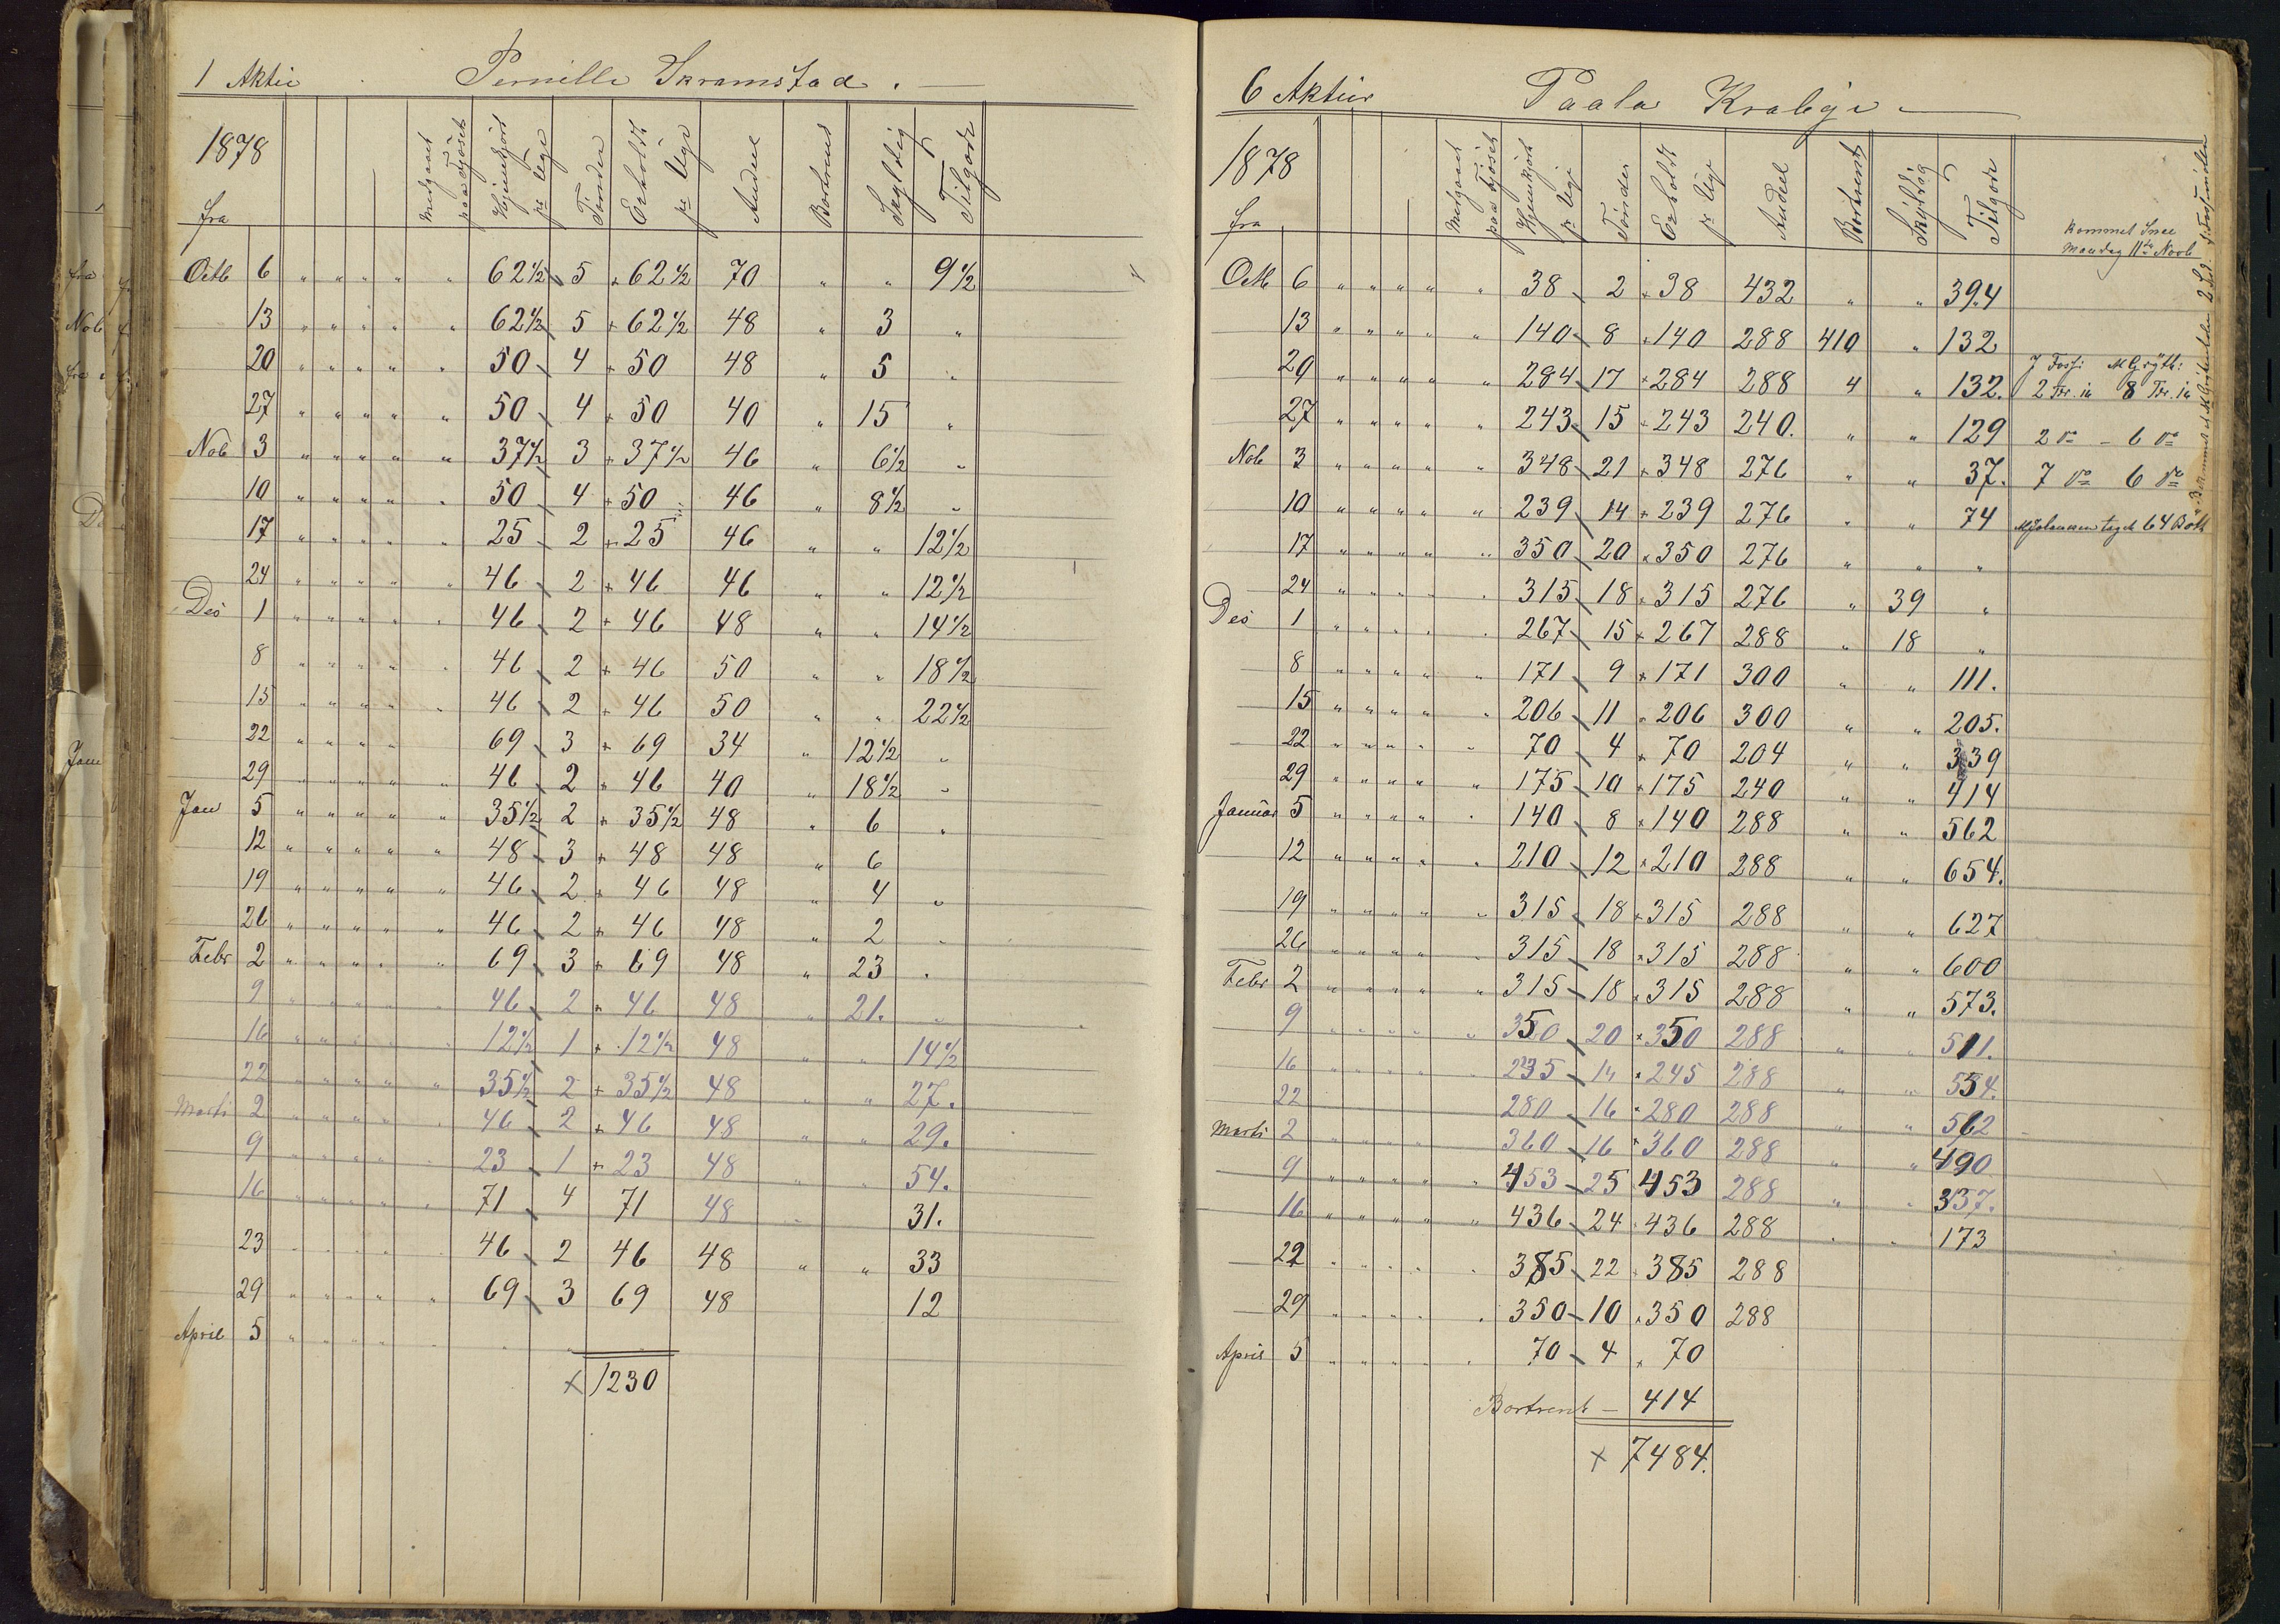 1 Aktie Pernille Skramstad.
1878
fra
Medgaaet paa Fjöset
Hjemkjört pr Uge
Tönder
Erholdt pr Uge
Andeel
Bortrent
Skyldig
Tilgode
Octb 6 " " " " " 62½ 5 × 62½ 70 " " 9½
13 " " " " " 62½ 5 × 62½ 48 " 3 "
20 " " " " " 50 4 × 50 48 " 5 "
27 " " " " " 50 4 × 50 40 " 15 "
Nob 3 " " " " " 37½ 3 × 37½ 46 " 6½ "
10 " " " " " 50 4 × 50 46 " 8½ "
17 " " " " " 25 2 × 25 46 " " 12½
24 " " " " " 46 2 × 46 46 " " 12½
Des 1 " " " " " 46 2 × 46 48 " " 14½
8 " " " " " 46 2 × 46 50 " " 18½
15 " " " " " 46 2 × 46 50 " " 22½
22 " " " " 69 3 × 69 34 " 12½ "
29 " " " " " 46 2 × 46 40 " 18½ "
Jan 5 " " " " " 35½ 2 × 35½ 48 " 6 "
12 " " " " " 48 3 × 48 48 " 6
19 " " " " " 46 2 × 46 48 " 4 "
26 " " " " " 46 2 × 46 48 " 2 "
Febr 2 " " " " " 69 3 × 69 48 " 23 "
9 " " " " " 46 2 × 46 48 " 21. "
16 " " " " " 12½ 1 × 12½ 48 " " 14½
22 " " " " " 35½ 2 × 35½ 48 " " 27.
Marts 2 " " " " " 46 2 × 46 48 " " 29.
9 " " " " " 23 1 × 23 48 " " 54.
16 " " " " " 71 4 71 48 " 31.
23 " " " " " 46 2 46 48 " " 33
29 " " " " " 69 3 69 48 12
April 5 " " " " " "
× 1230
6 Aktier Paala Krabye
1878
fra
Medgaaet paa Fjöset
Hjemkjört pr Uge
Tönder
Erholdt pr Uge
Andeel
Bortrent
Skyldig
Tilgode
Kommet Snee
Mandag 11te Novb
Octb 6 " " " " " 38 2 × 38 432 " " 394
13 " " " " " 140 8 × 140 288 410 " 132
20 " " " " " 284 17 × 284 288 4 " 132.
2 Tör. in 8 Tör. in
27 " " " " " 243 15 × 243 240. " " 129 2 do - 6 do
Nob 3 " " " " " 348 21 × 348 276 " " 37. 7 do 6 do
10 " " " " " 239 14 × 239 276 " " 74
17 " " " " " 350 20 × 350 276 " " "
24 " " " " " 315 18 × 315 276 " 39 "
Des 1 " " " " " 267 15 × 267 288 " 18 "
8 " " " " " 171 9 × 171 300 " " 111.
15 " " " " " 206 11 × 206 300 " " 205.
22 " " " " " 70 4 × 70 204 " " 339
29 " " " " " 175 10 × 175 240 " " 414
Januar 5 " " " " " 140 8 × 140 288 " " 562
12 " " " " " 210 12 × 210 288 " " 654.
19 " " " " " 315 18 × 315 288 " " 627
26 " " " " " 315 18 × 315 288 " " 600
Febr 2 " " " " " 315 18 × 315 288 " " 573.
9 " " " " " 350 20 × 350 288 " " 511.
16 " " " " " 235 14 × 245 288 " " 554.
22 280 16 × 280 288 " " 562
Marts 2 " " " " 360 16 × 360 288 " " 490
9 " " " " " 453 25 453 288 " " 337.
16 " " " " " 436 24 × 436 288 " " 173
22 " " " " " 385 22 × 385 288
29 " " " " " 350 10 × 350 288
April 5 " " " " " 70 4 × 70
Bortrent – 414
× 7484.